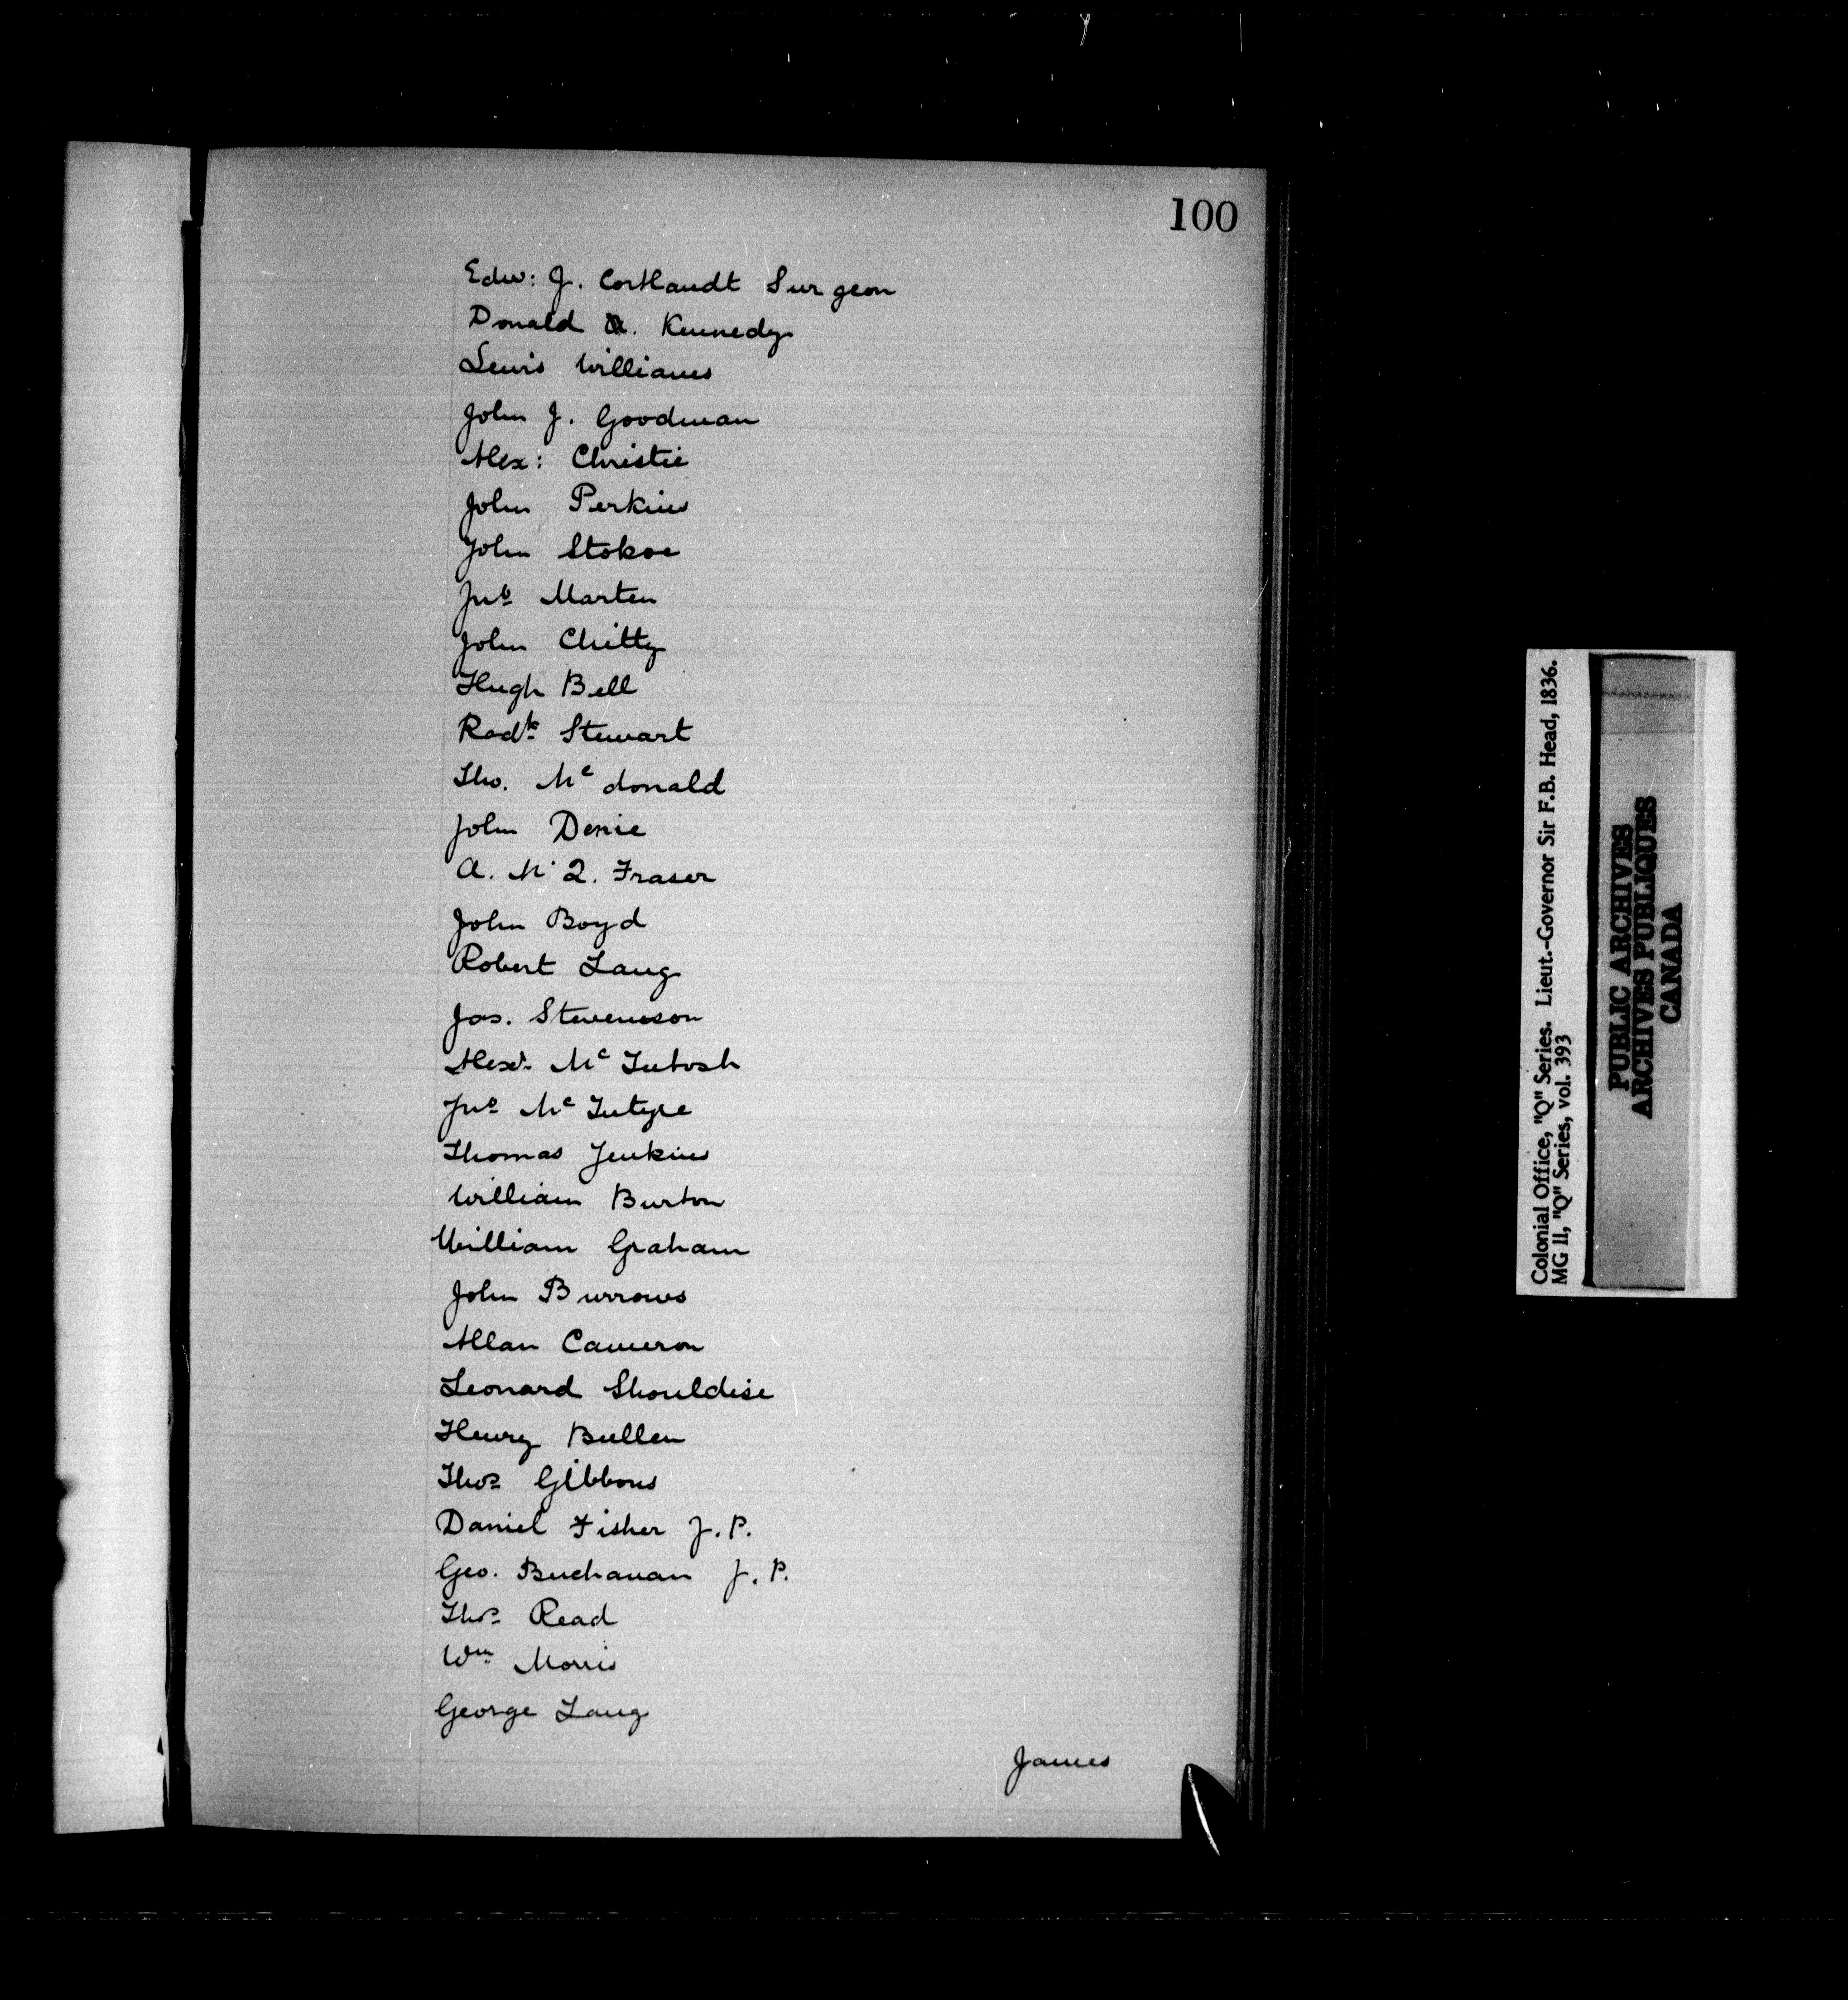 100
Edw: J. Cortlandt Surgeon
Donald Kennedy
Lewis Williams
John J. Goodman
Alex: Christie
John Perkins
John Stokoe
Jno Marten
John Chitty
Hugh Bell
Rodk Stewart
Tho. Mc donald
John Denie
A. M. Q. Fraser
John Boyd
Robert Lang
Jas. Stevenson
Alexr. Mc Intosh
Jno Mc Intyre
Thomas Jenkins
William Burton
William Graham
John Burrows
Allan Cameron
Leonard Shouldise
Henry Bullen
Thos Gibbons
Daniel Fisher J.P.
Geo. Buchanan J.P.
Thos Read
Wm Morris
George Lang
James
Colonial Office, "Q" Series. Lieut.-Governor Sir F.B. Head, 1836.
MG 11, "Q" Series, vol. 393
PUBLIC ARCHIVES
ARCHIVES PUBLIQUES
CANADA